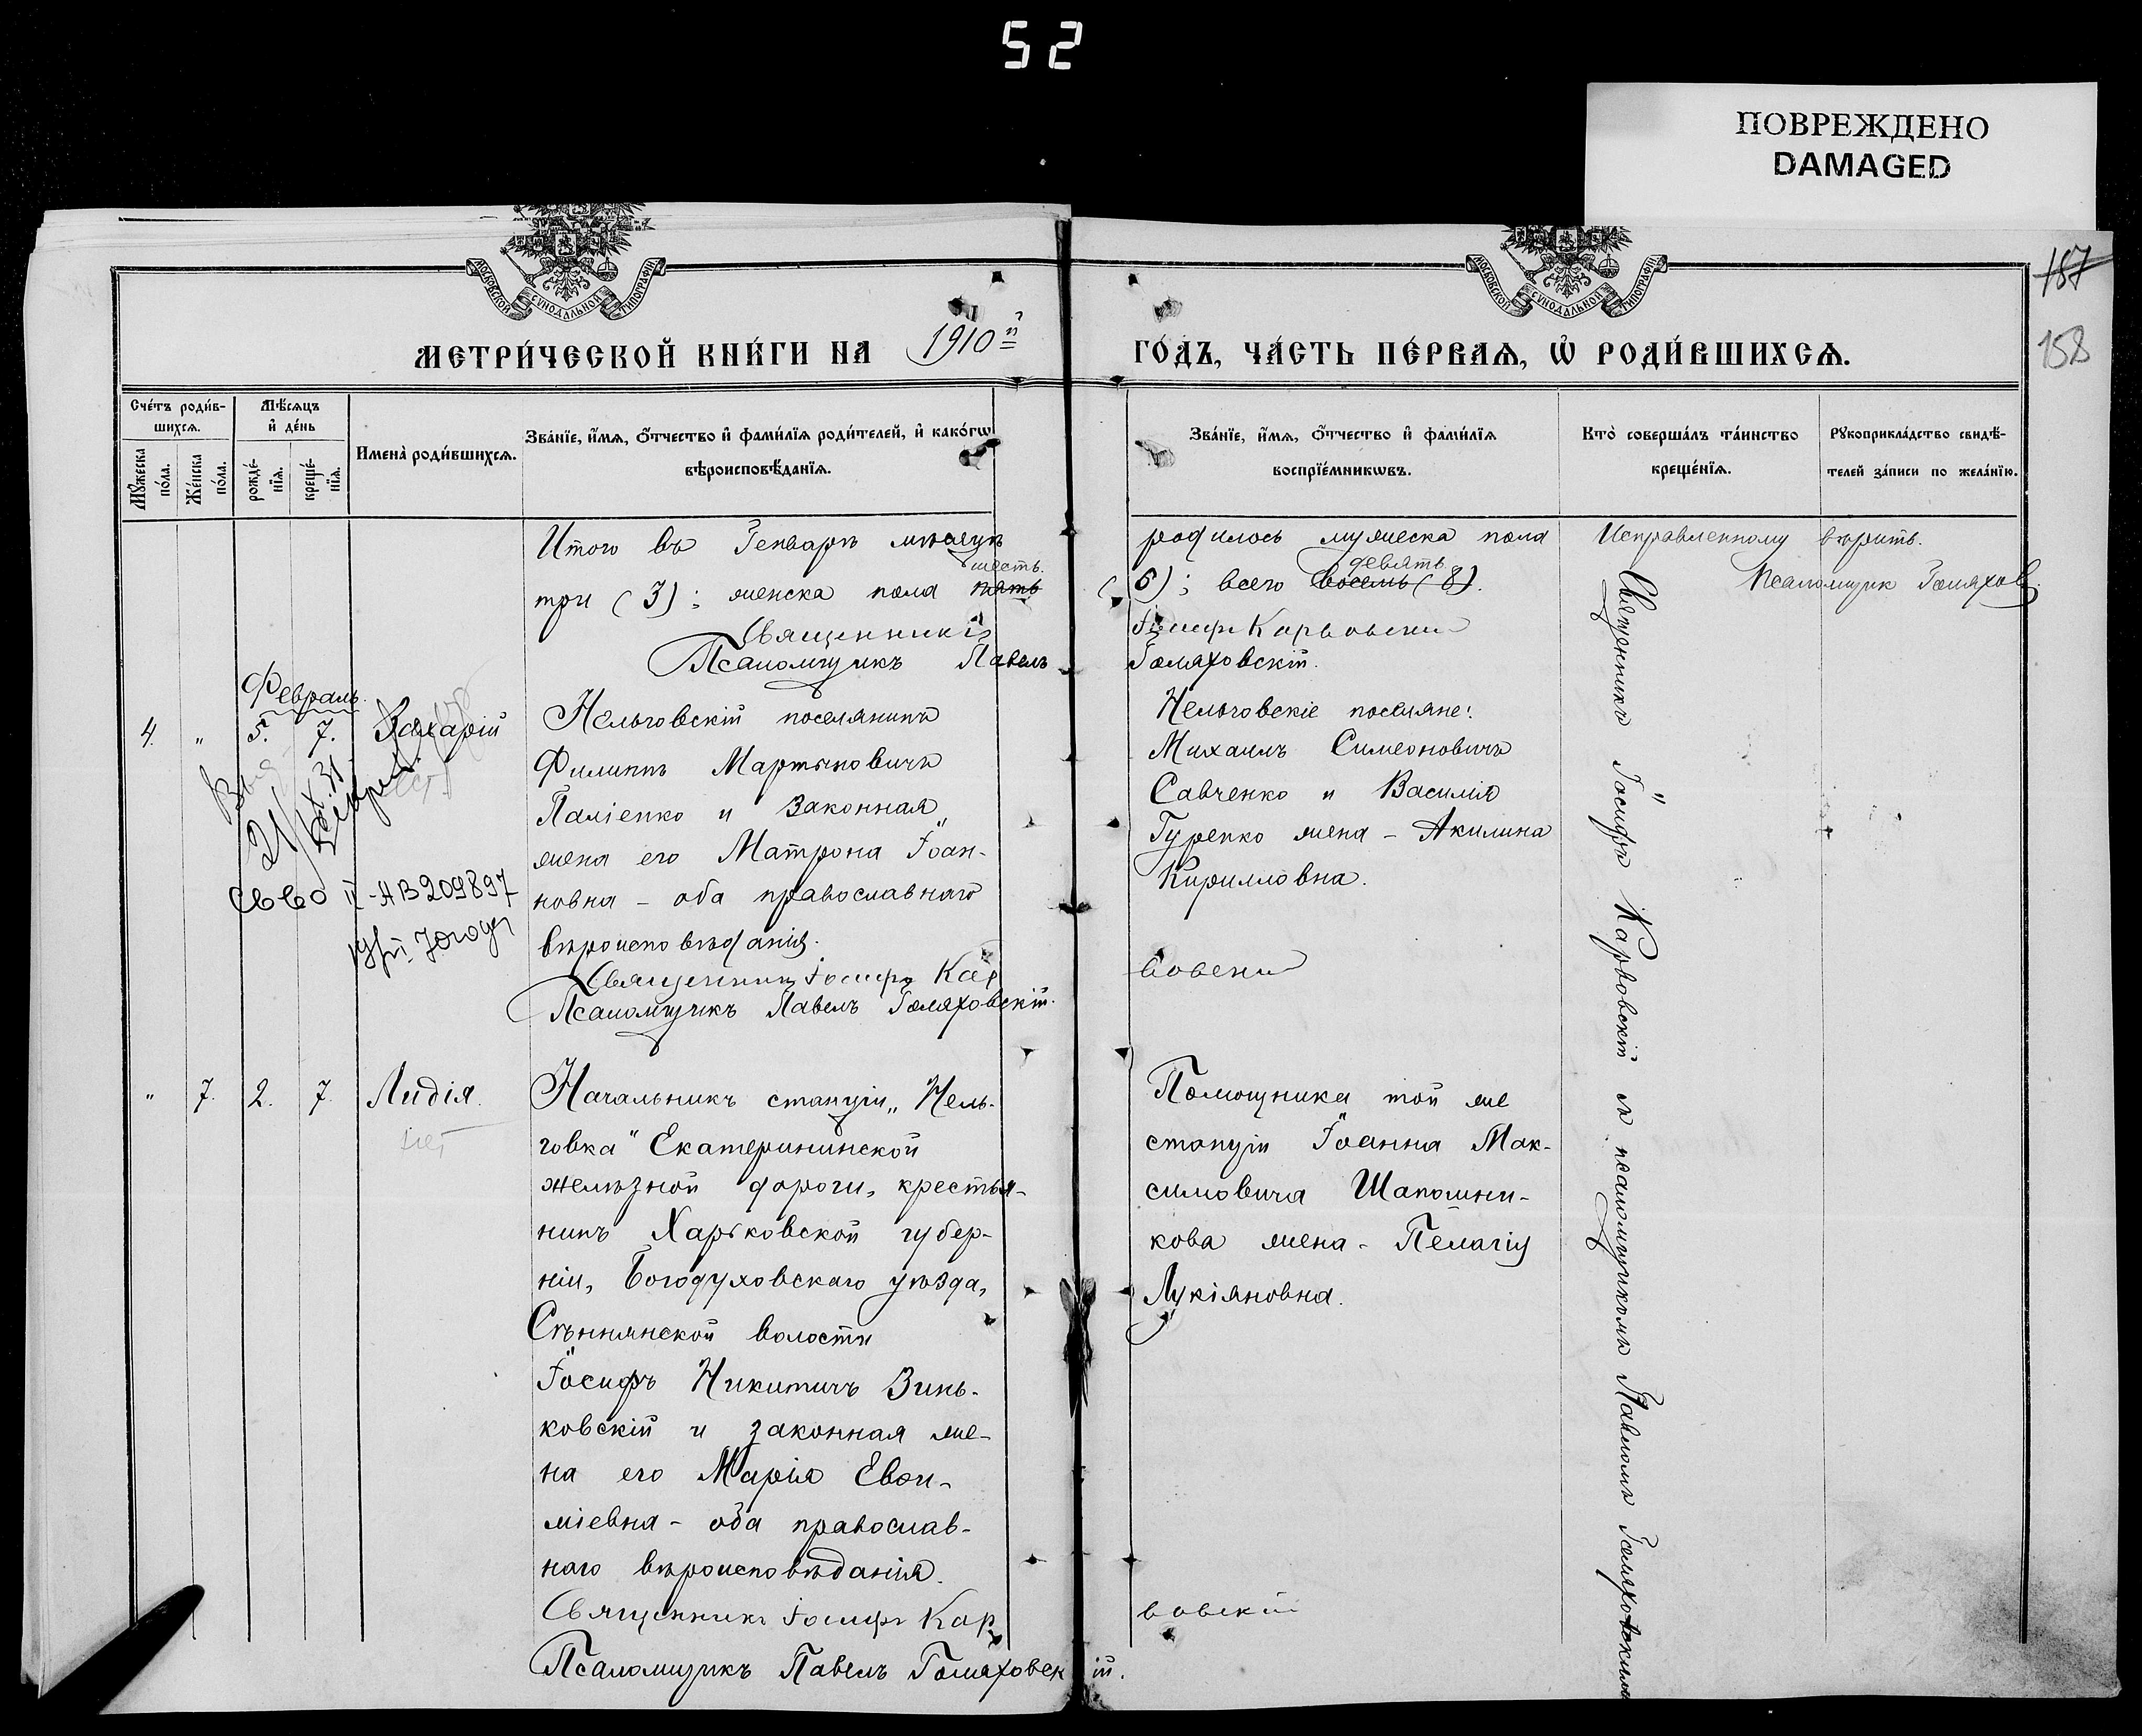 52
ПОВРЕЖДЕНО
DAMAGED
МОСКОВСКОЙ СѴНОДАЛЬНОЙ ТИПОГРАФІИ
МОСКОВСКОЙ СѴНОДАЛЬНОЙ ТИПОГРАФІИ
187
158
МЕТРИ́ЧЕСКОЙ КНИ́ГИ НА 1910й
ГО́ДЪ, ЧА́СТЬ ПЕ́РВАЯ, Ѡ РОДИ́ВШИХСЯ.
Сче́тъ роди́вшихся.
Му́жеска по́ла.
Же́нска по́ла.
Мѣ́сяцъ и де́нь
рожде́нїя.
креще́нїя.
Имена̀ роди́вшихся.
Зва́нїе, и́мя, о́тчество и фами́лїя роди́телей, и како́гѡ
вѣроисповѣ́данїя.
Зва́нїе, и́мя, о́тчество и фами́лїя
воспрїе́мникѡвъ.
Кто̀ соверша́лъ та́инство
креще́нїя.
Рукоприкла́дство свидѣ́-
телей за́писи по жела́нїю.
Итого въ Генварѣ мѣсяцѣ
шесть.
три (3); женска пола пять
Священникъ
Псаломщикъ Павелъ
родилось мужеска пола
девять
(6); всего восемь (8).
Іосифъ Карвовскій
Голяховскій.
Исправленному вѣрить.
Псаломщик Голяхов
Февраль.
4. " 5. 7. Захарій
21/IX.31
Св во II-АВ 209897
Нельговскій поселянинъ
Филиппъ Мартиновичъ
Паліенко и законная
жена его Матрона Іоан-
новна - оба православнаго
вѣроисповѣданія.
Священникъ Іосифъ Кар
Псаломщикъ Павелъ Голяховскій.
Нельговскіе поселяне:
Михаилъ Симеоновичъ
Савченко и Василія
Гуренко жена - Акилина
Кирилловна.
вовскій
Священникъ Іосифъ Карвовскій съ псаломщикомъ Павломъ Голяховскимъ
" 7. 2. 7. Лидія.
нет
Начальникъ станціи „Нель-
говка" Екатерининской
желѣзной дороги, крестья-
нинъ Харьковской губер-
ніи, Богодуховскаго уѣзда,
Сѣннянской волости
Іосифъ Никитичъ Зинь-
ковскій и законная же-
на его Марія Евѳи-
міевна - оба православ-
наго вѣроисповѣданія.
Священникъ Іосифъ Кар
Псаломщикъ Павелъ Голяховскій.
Помощника той же
станціи Іоанна Мак-
симовича Шапошни-
кова жена - Пелагія
Лукіяновна.
вовскій